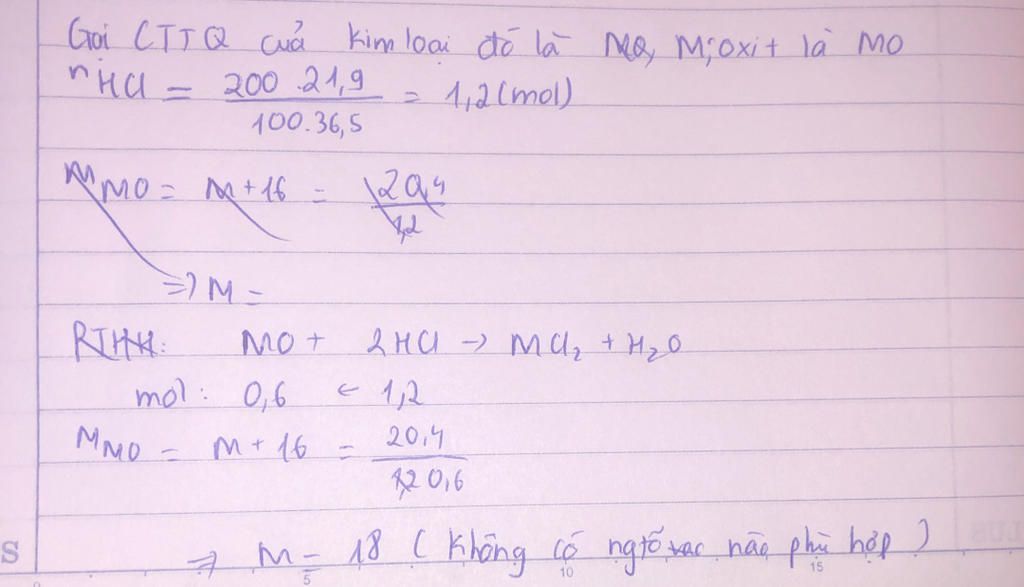 Gọi CTTQ cuả kim loại đó là M; oxit là MO
nHCl = 200.21,9 / 100.36,5 = 1,2 (mol)
MMO = M + 16 = 120,4 / 1,2
=> M =
PTHH: MO + 2HCl -> MCl₂ + H₂O
mol: 0,6 <- 1,2
MMO = M + 16 = 20,4 / 0,6
=> M = 18 (Không có ngtố nào phù hợp)
S
5 10 15